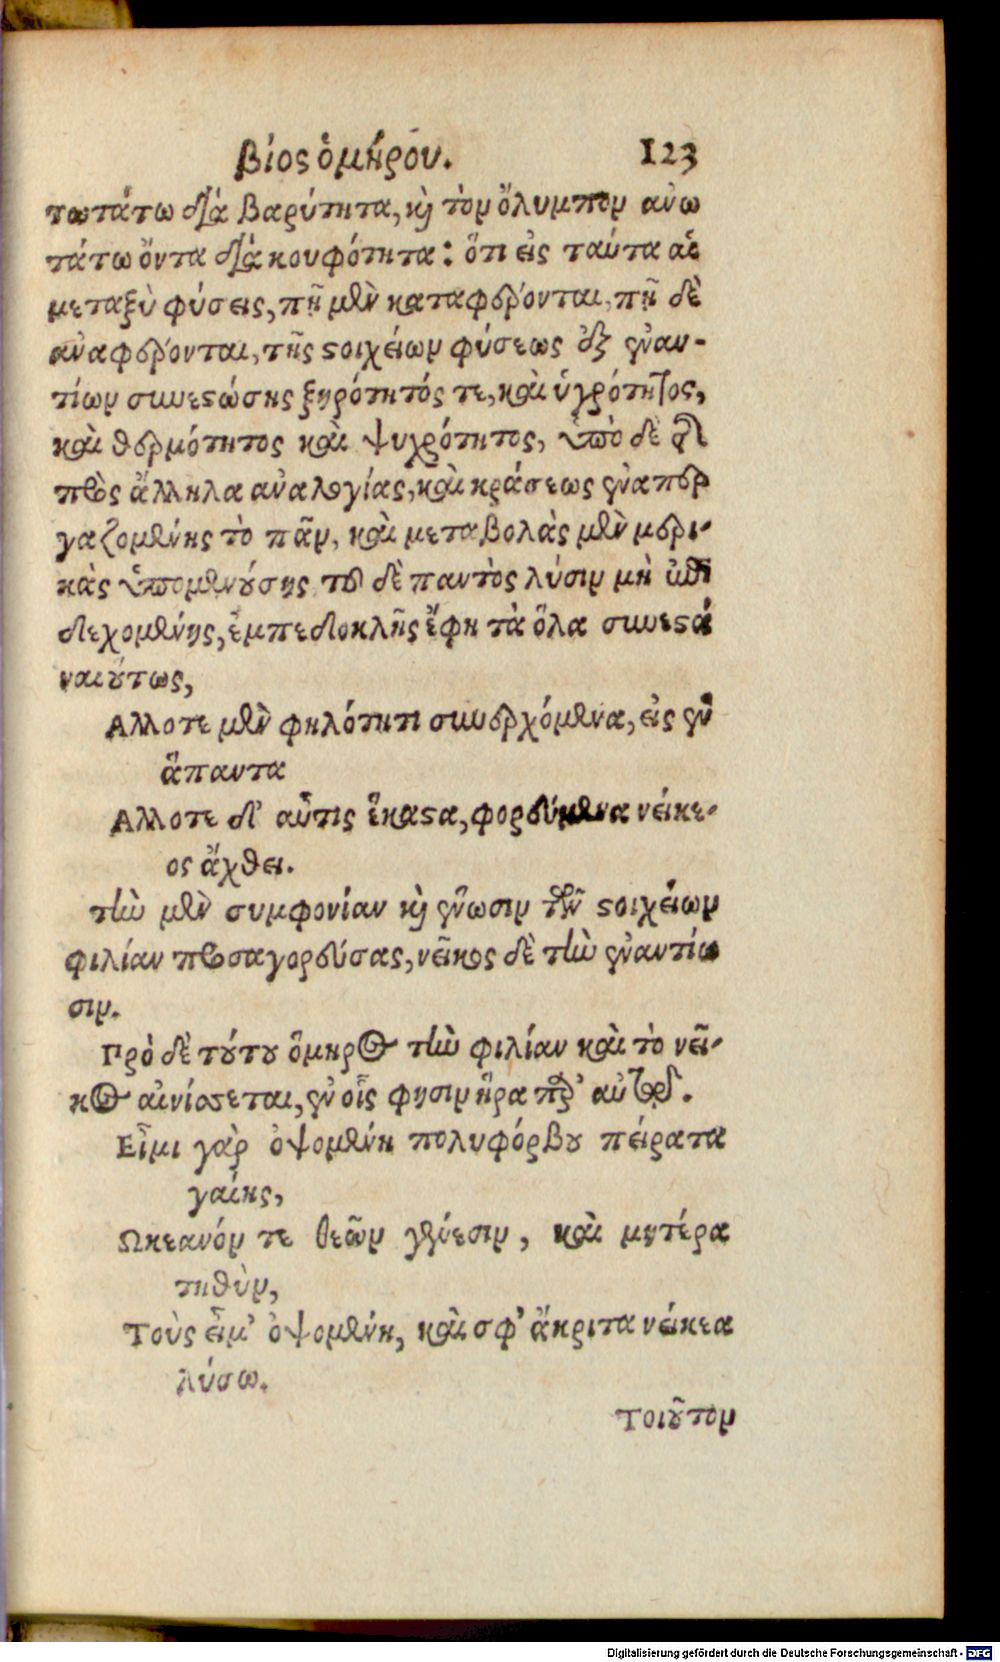 βίος ὁμήρου. 123
τωτάτω διὰ βαρύτητα, κὶ τὸν ὄλυμπον ἀνω
τάτω ὄντα διὰ κουφότητα: ὅτι εἰς ταύτα αἱ
μεταξὺ φύσεις, πῆ μὲν καταφέρονται, πῆ δὲ
ἀναφέρονται, τῆς στοιχείων φύσεως ἐξ ἐναν-
τίων συνεστώσης ξηρότητός τε, καὶ ὑγρότητος,
καὶ θερμότητος καὶ ψυχρότητος, ὑπὸ δὲ τῆς
πρὸς ἄλληλα ἀναλογίας, καὶ κράσεως ἐναπερ
γαζομένης τὸ πᾶν, καὶ μεταβολὰς μὲν μερι-
κὰς ὑπομενούσης τοῦ δὲ παντὸς λύσιν μὴ ἐπι
δεχομένης, ἐμπεδοκλῆς ἔφη τὰ ὅλα συνεστά
ναι ούτως,
Αλλοτε μὲν φηλότητι συνερχόμενα, εἰς ἓν
ἅπαντα
Αλλοτε δ' αὖτις ἕκαστα, φορεύμενα νείκε-
ος ἄχθει.
τὴν μὲν συμφονίαν κὶ ἕνωσιν τῶν στοιχείων
φιλίαν προσαγορεύσας, νεῖκος δὲ τὴν ἐναντίω
σιν.
Πρὸ δὲ τούτου ὅμηρος τὴν φιλίαν καὶ τὸ νεῖ-
κος αἰνίσσεται, ἐν οἷς φησιν ἥρα πρὸς αὐτοῦ.
Εἶμι γὰρ ὀψομένη πολυφόρβου πείρατα
γαίης,
Ωκεανόν τε θεῶν γένεσιν, καὶ μητέρα
τηθὺν,
Τοὺς εἶμ' ὀψομένη, καὶ σφ' ἄκριτα νείκεα
λύσω.
Τοιοῦτον
Digitalisierung gefördert durch die Deutsche Forschungsgemeinschaft - DFG